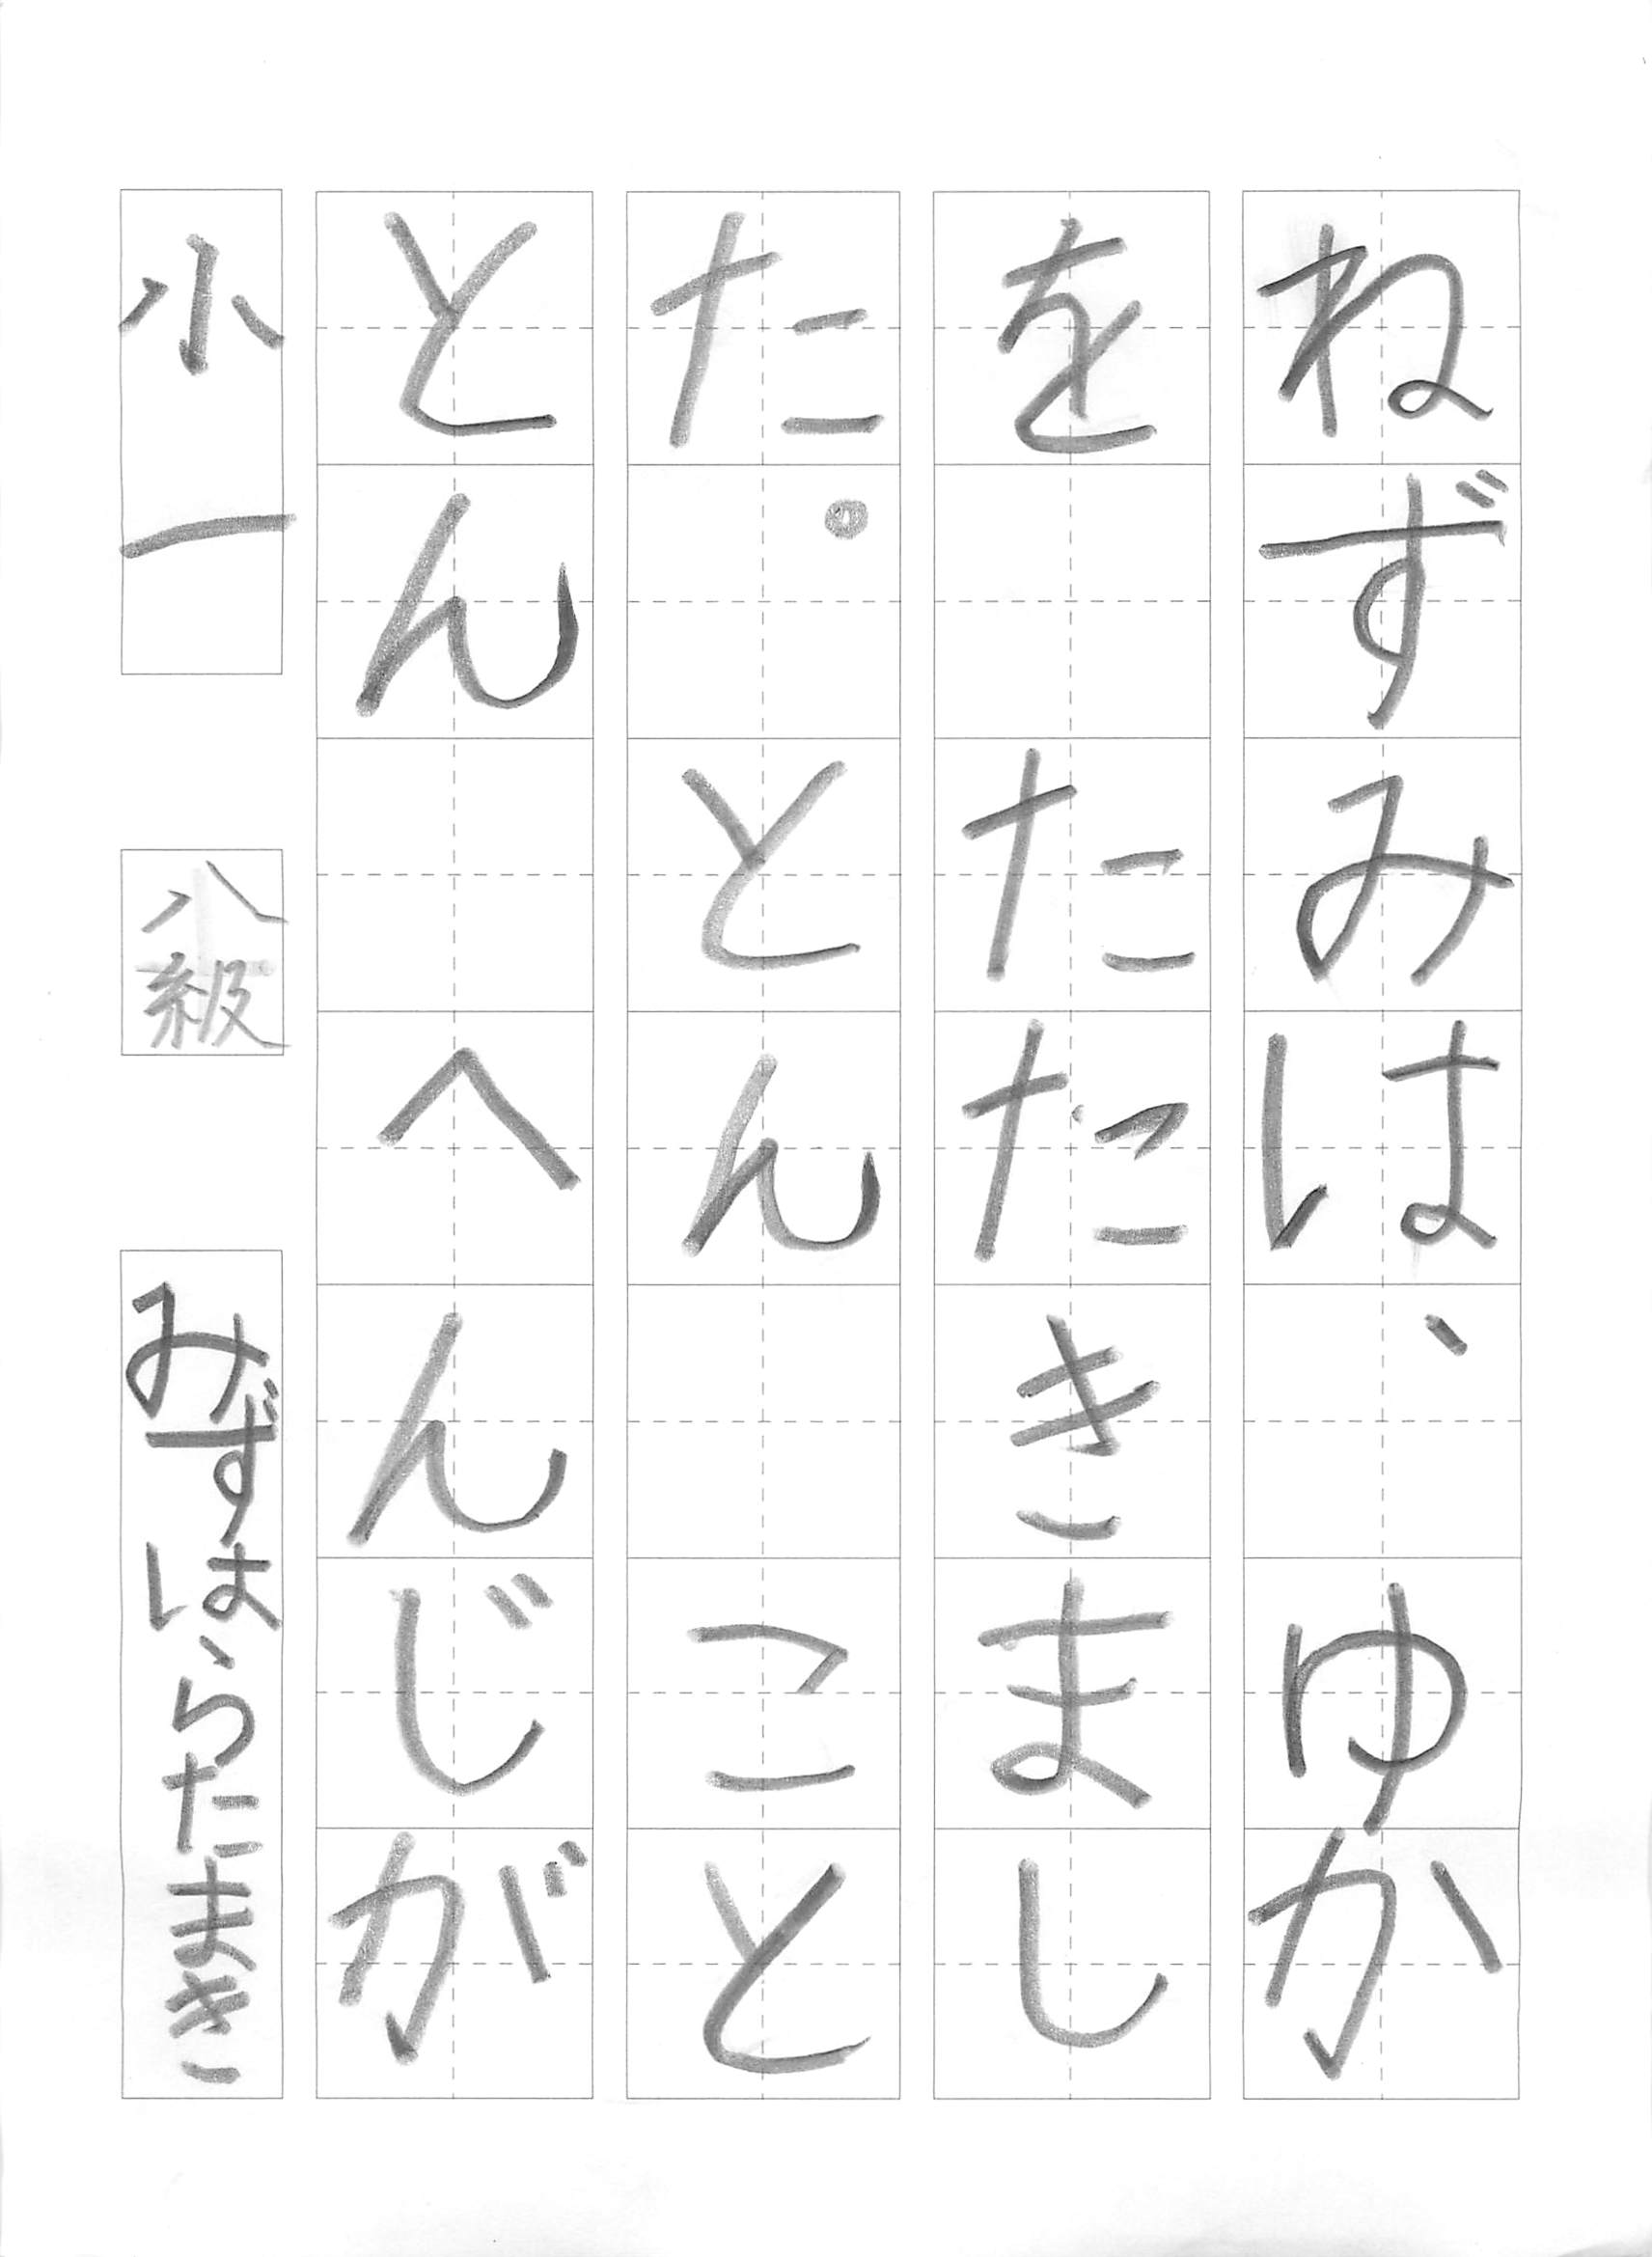 ねずみは、ゆか
を たたきまし
た。とん こと
とん へんじが
小一 八級 みずはらたまき